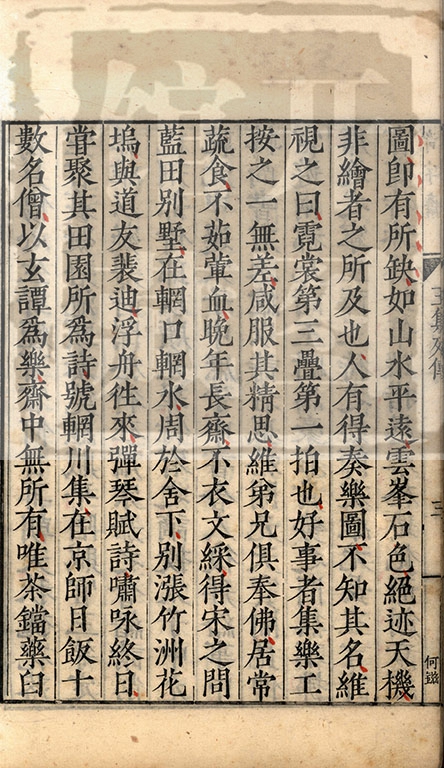 圖卽有所缺如山水平遠雲峯石色絕迹天機
非繪者之所及也人有得奏樂圖不知其名維
視之曰霓裳第三疊第一拍也好事者集樂工
按之一無差咸服其精思維弟兄俱奉佛居常
蔬食不茹葷血晚年長齋不衣文綵得宋之問
藍田別墅在輞口輞水周於舍下別漲竹洲花
塢與道友裴迪浮舟徃來彈琴賦詩嘯咏終日
甞聚其田園所爲詩號輞川集在京師日飯十
數名僧以玄譚爲樂齋中無所有唯茶鐺藥臼
三
何鎡